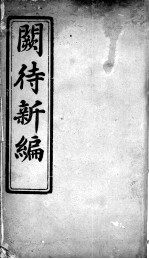 闕待新編